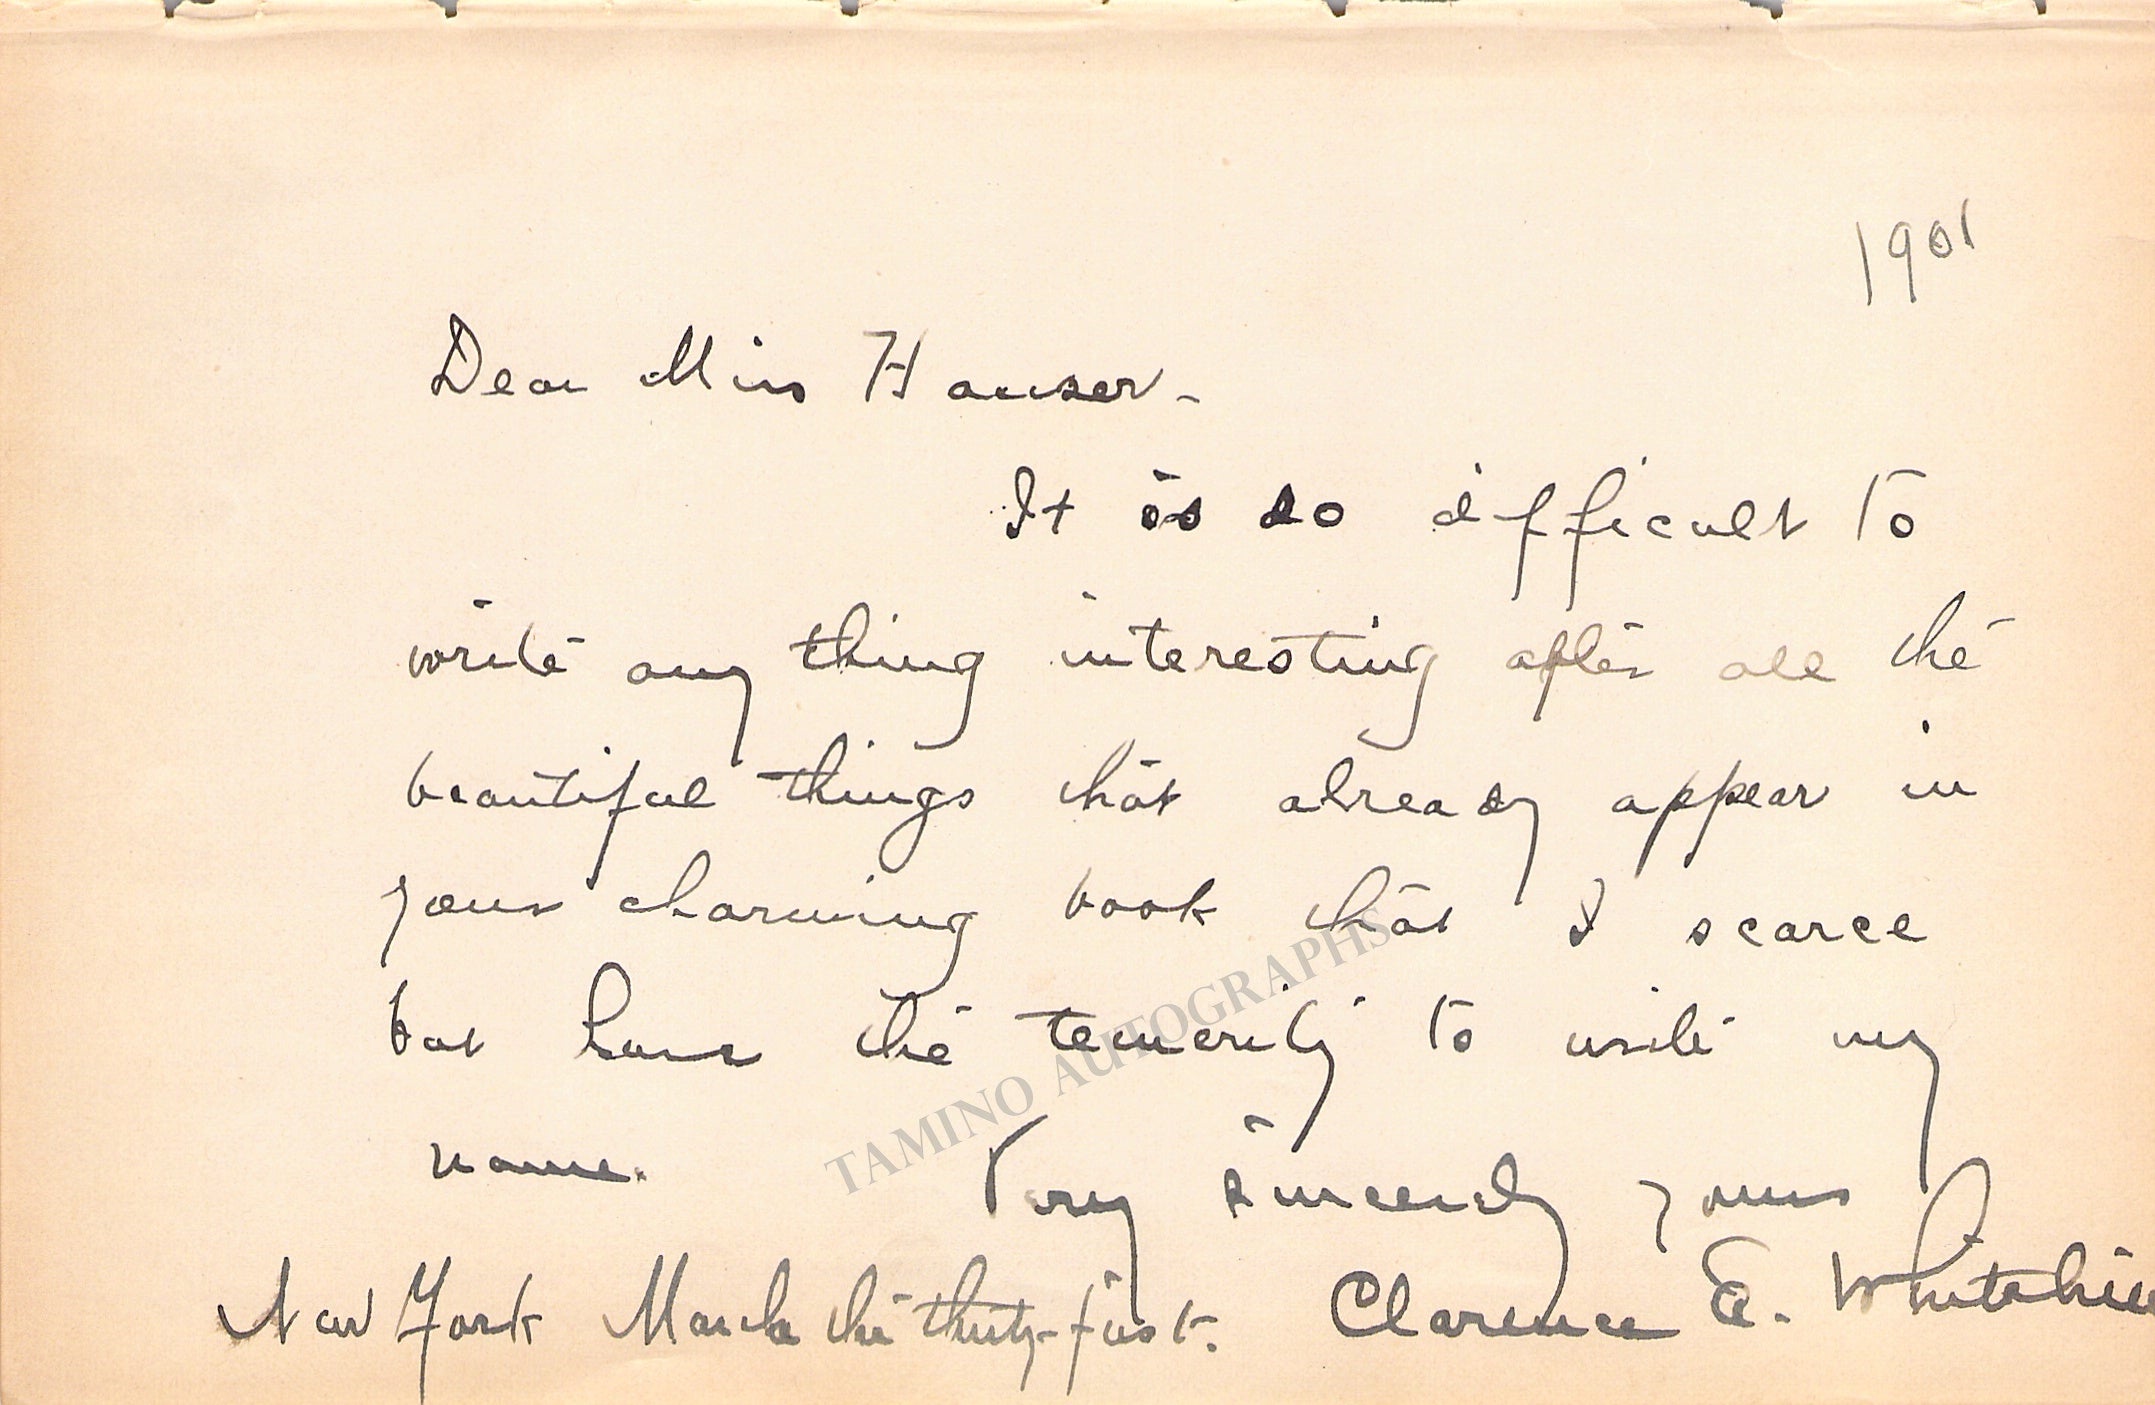 1901
Dear Miss Hauser -
It is so difficult to
write any thing interesting after all the
beautiful things that already appear in
your charming book that I scarce
but have the temerity to write my
name.
Very sincerely yours
New York March the thirty-first. Clarence E. Whitehill
TAMINO AUTOGRAPHS